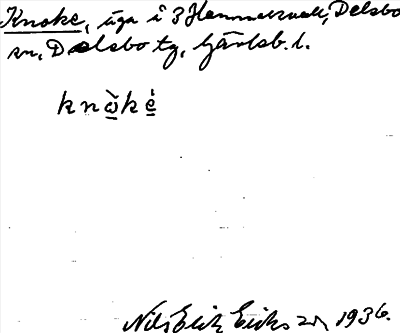 Knoke, äga i 3 Hammarvall, Delsbo
sn, Delsbo tg, Gävleb. l.
knὼ̠kė̠
Nils Erik Eriksson 1936.